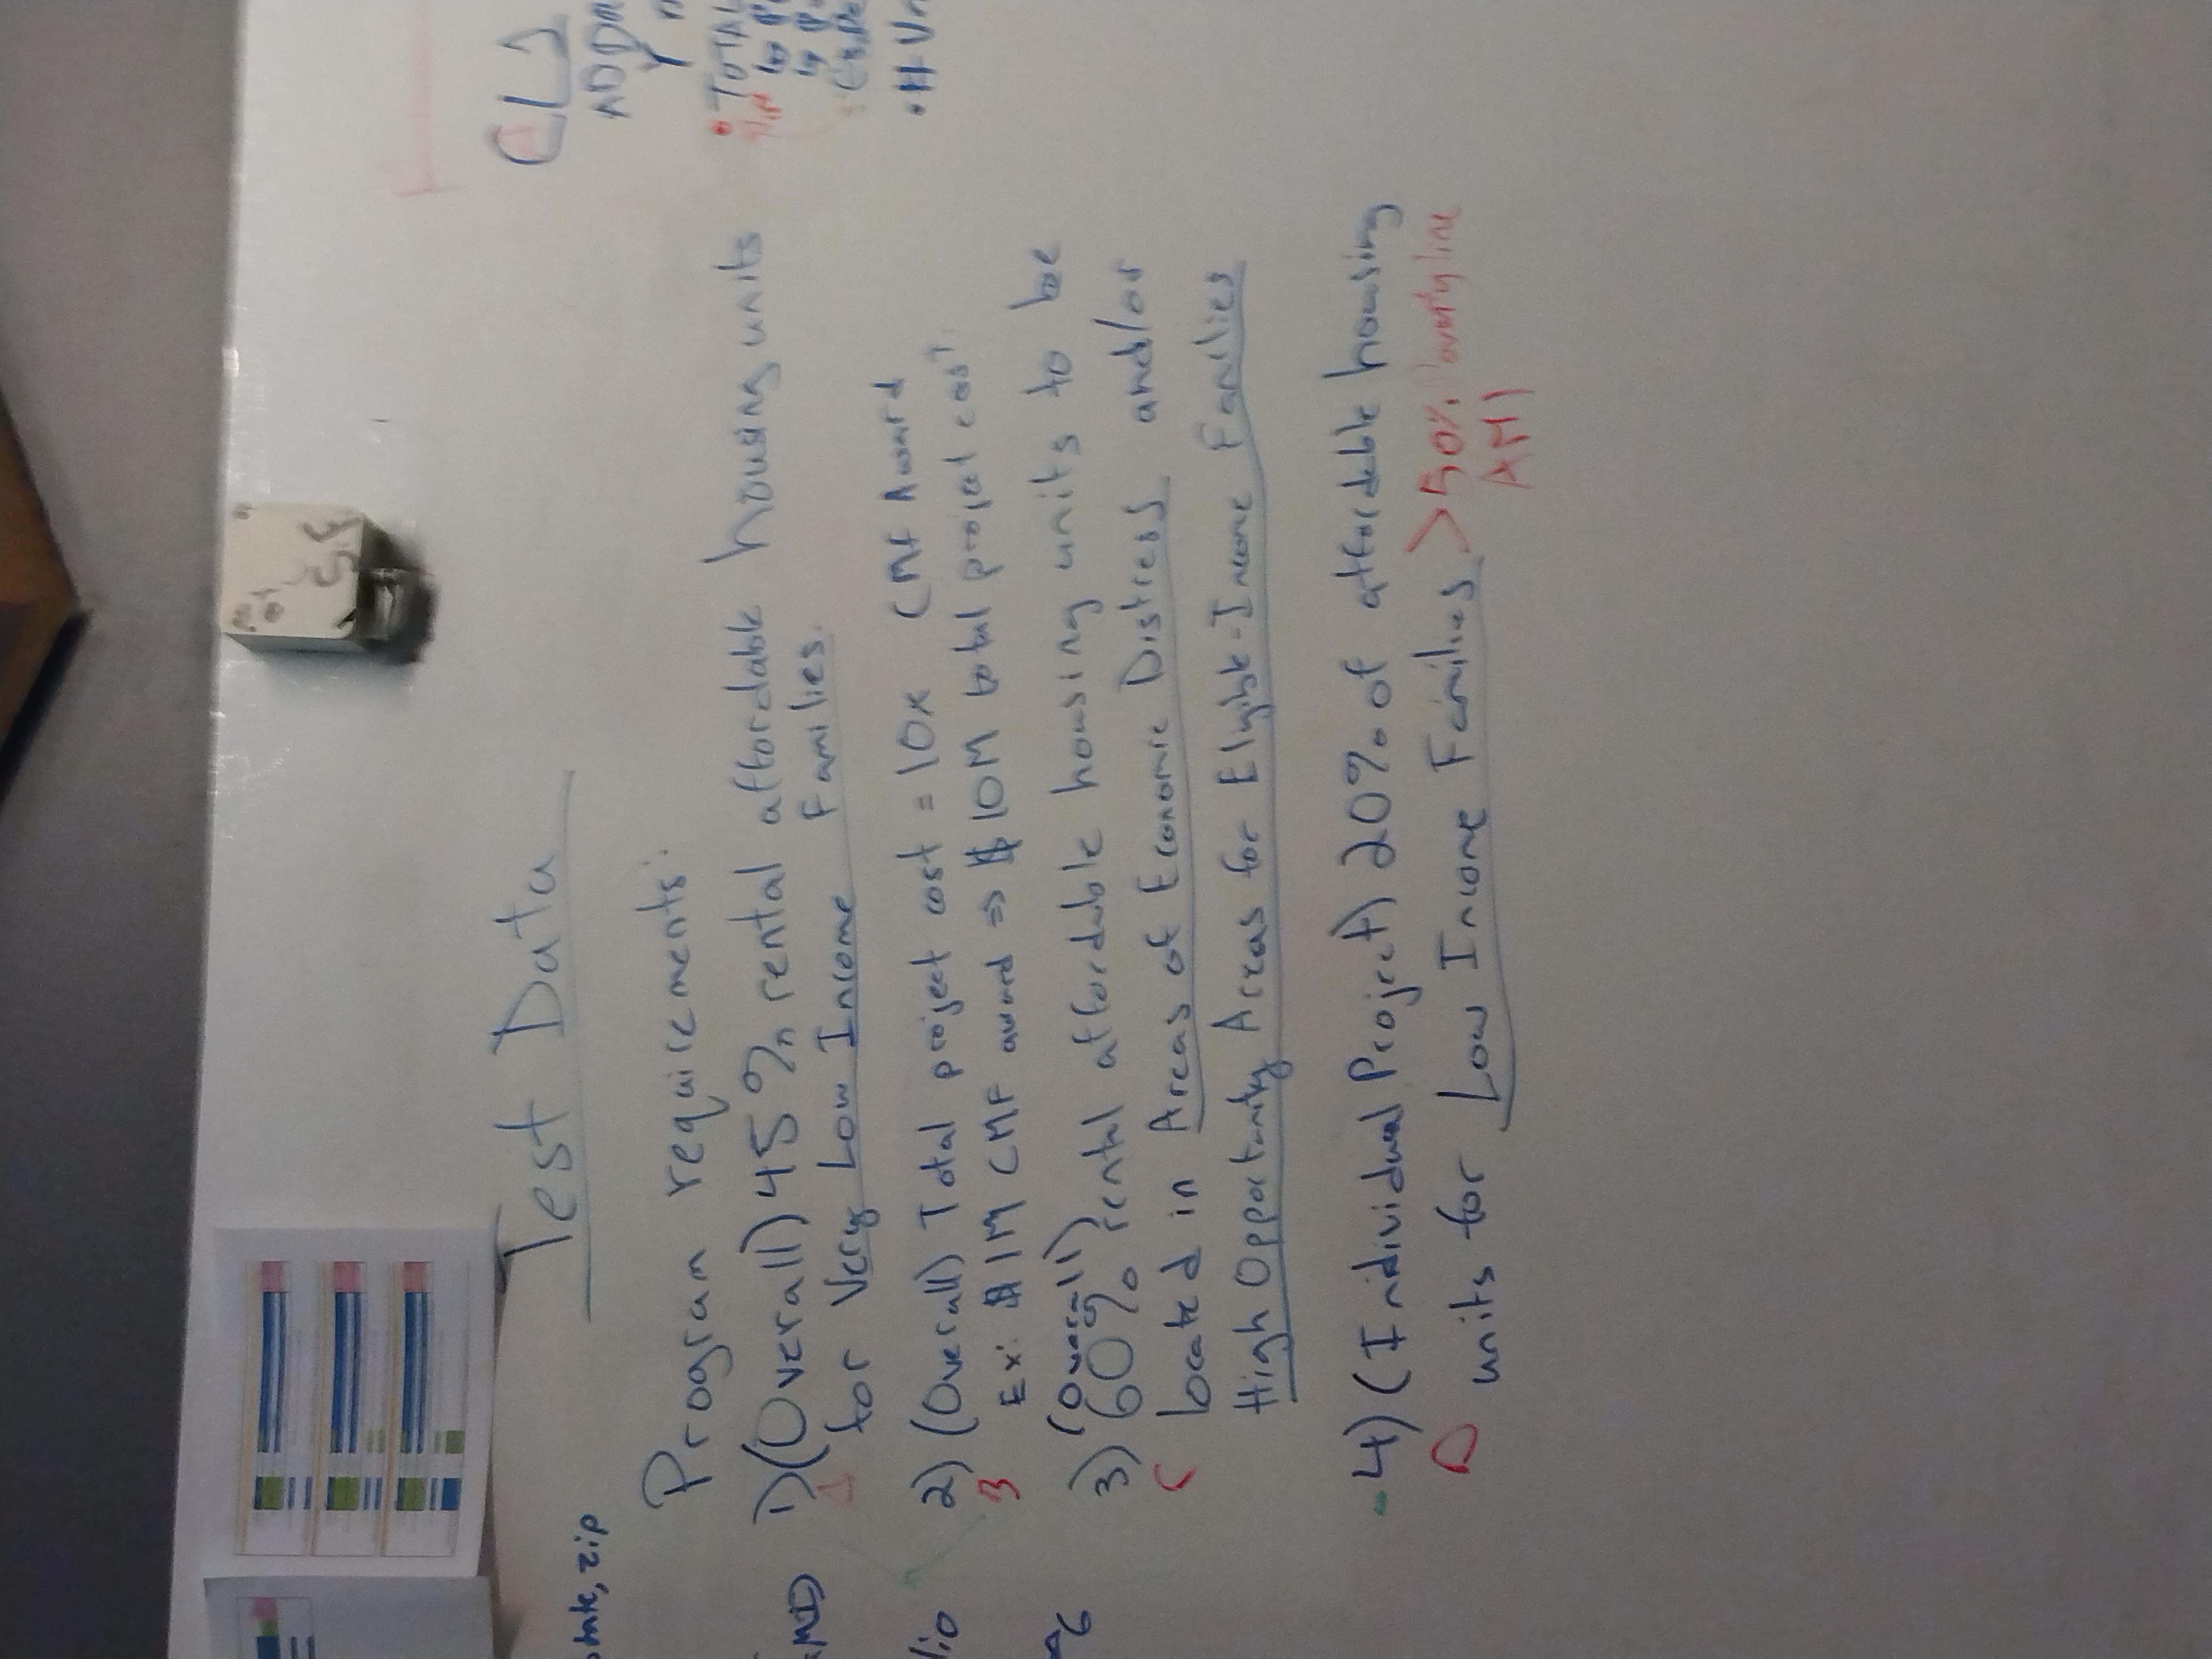 Test Data
zip
Program requirements:
1) (Overall) 45% rental affordable housing units
for Very Low Income Families.
A
2) (Overall) Total project cost = 10x CMF Award
B Ex: $1M CMF award => $10M total project cost
(Overall)
3) 60% rental affordable housing units to be
C located in Areas of Economic Distress and/or
High Opportunity Areas for Eligible-Income Families
4) (Individual Project) 20% of affordable housing
D units for Low Income Families >50% Poverty line
AMI
TOTAL